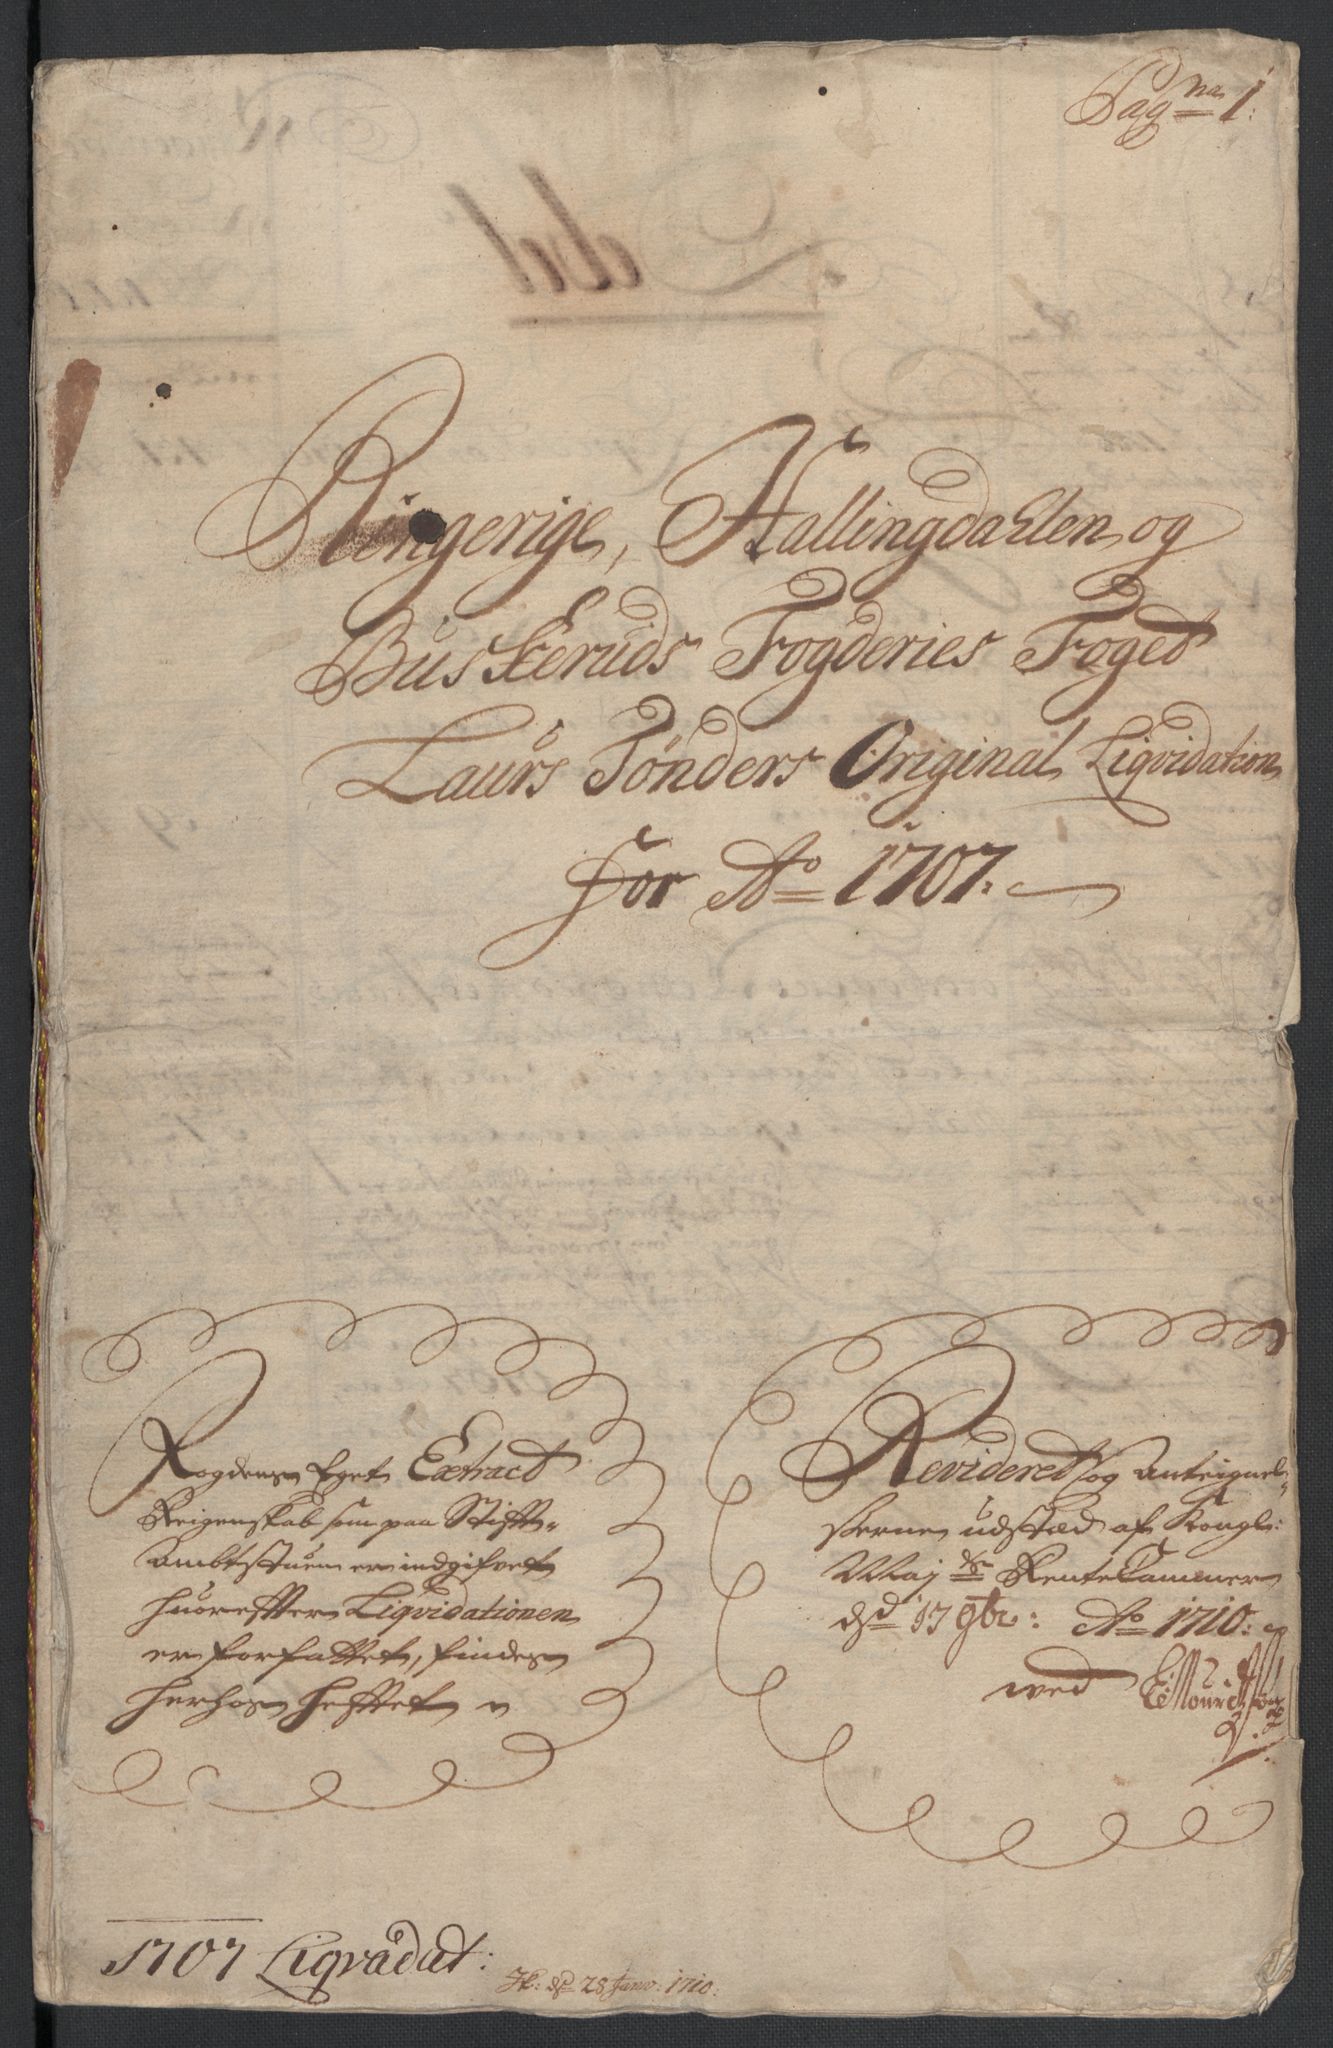 Pagna 1:
Ringerige, Hallingdahlen og
Buskeruds Fogderies Foget
Laurs Tønders Original Liqvidation
for Ao 1707.
Fogdens Eget Extract
Reigenskab som paa Stifft-
Ambtstuen er indgifvet
huoreffter Liqvidationen
er forfattet, findes
herhos hefftet
Revideret og Anteignel-
serne udstæd af Kongl:
Maj ts RenteCammer
dend 17 9br: Ao 1710:
ved
1707 Liqvidat:
d 28 Janv: 1710: